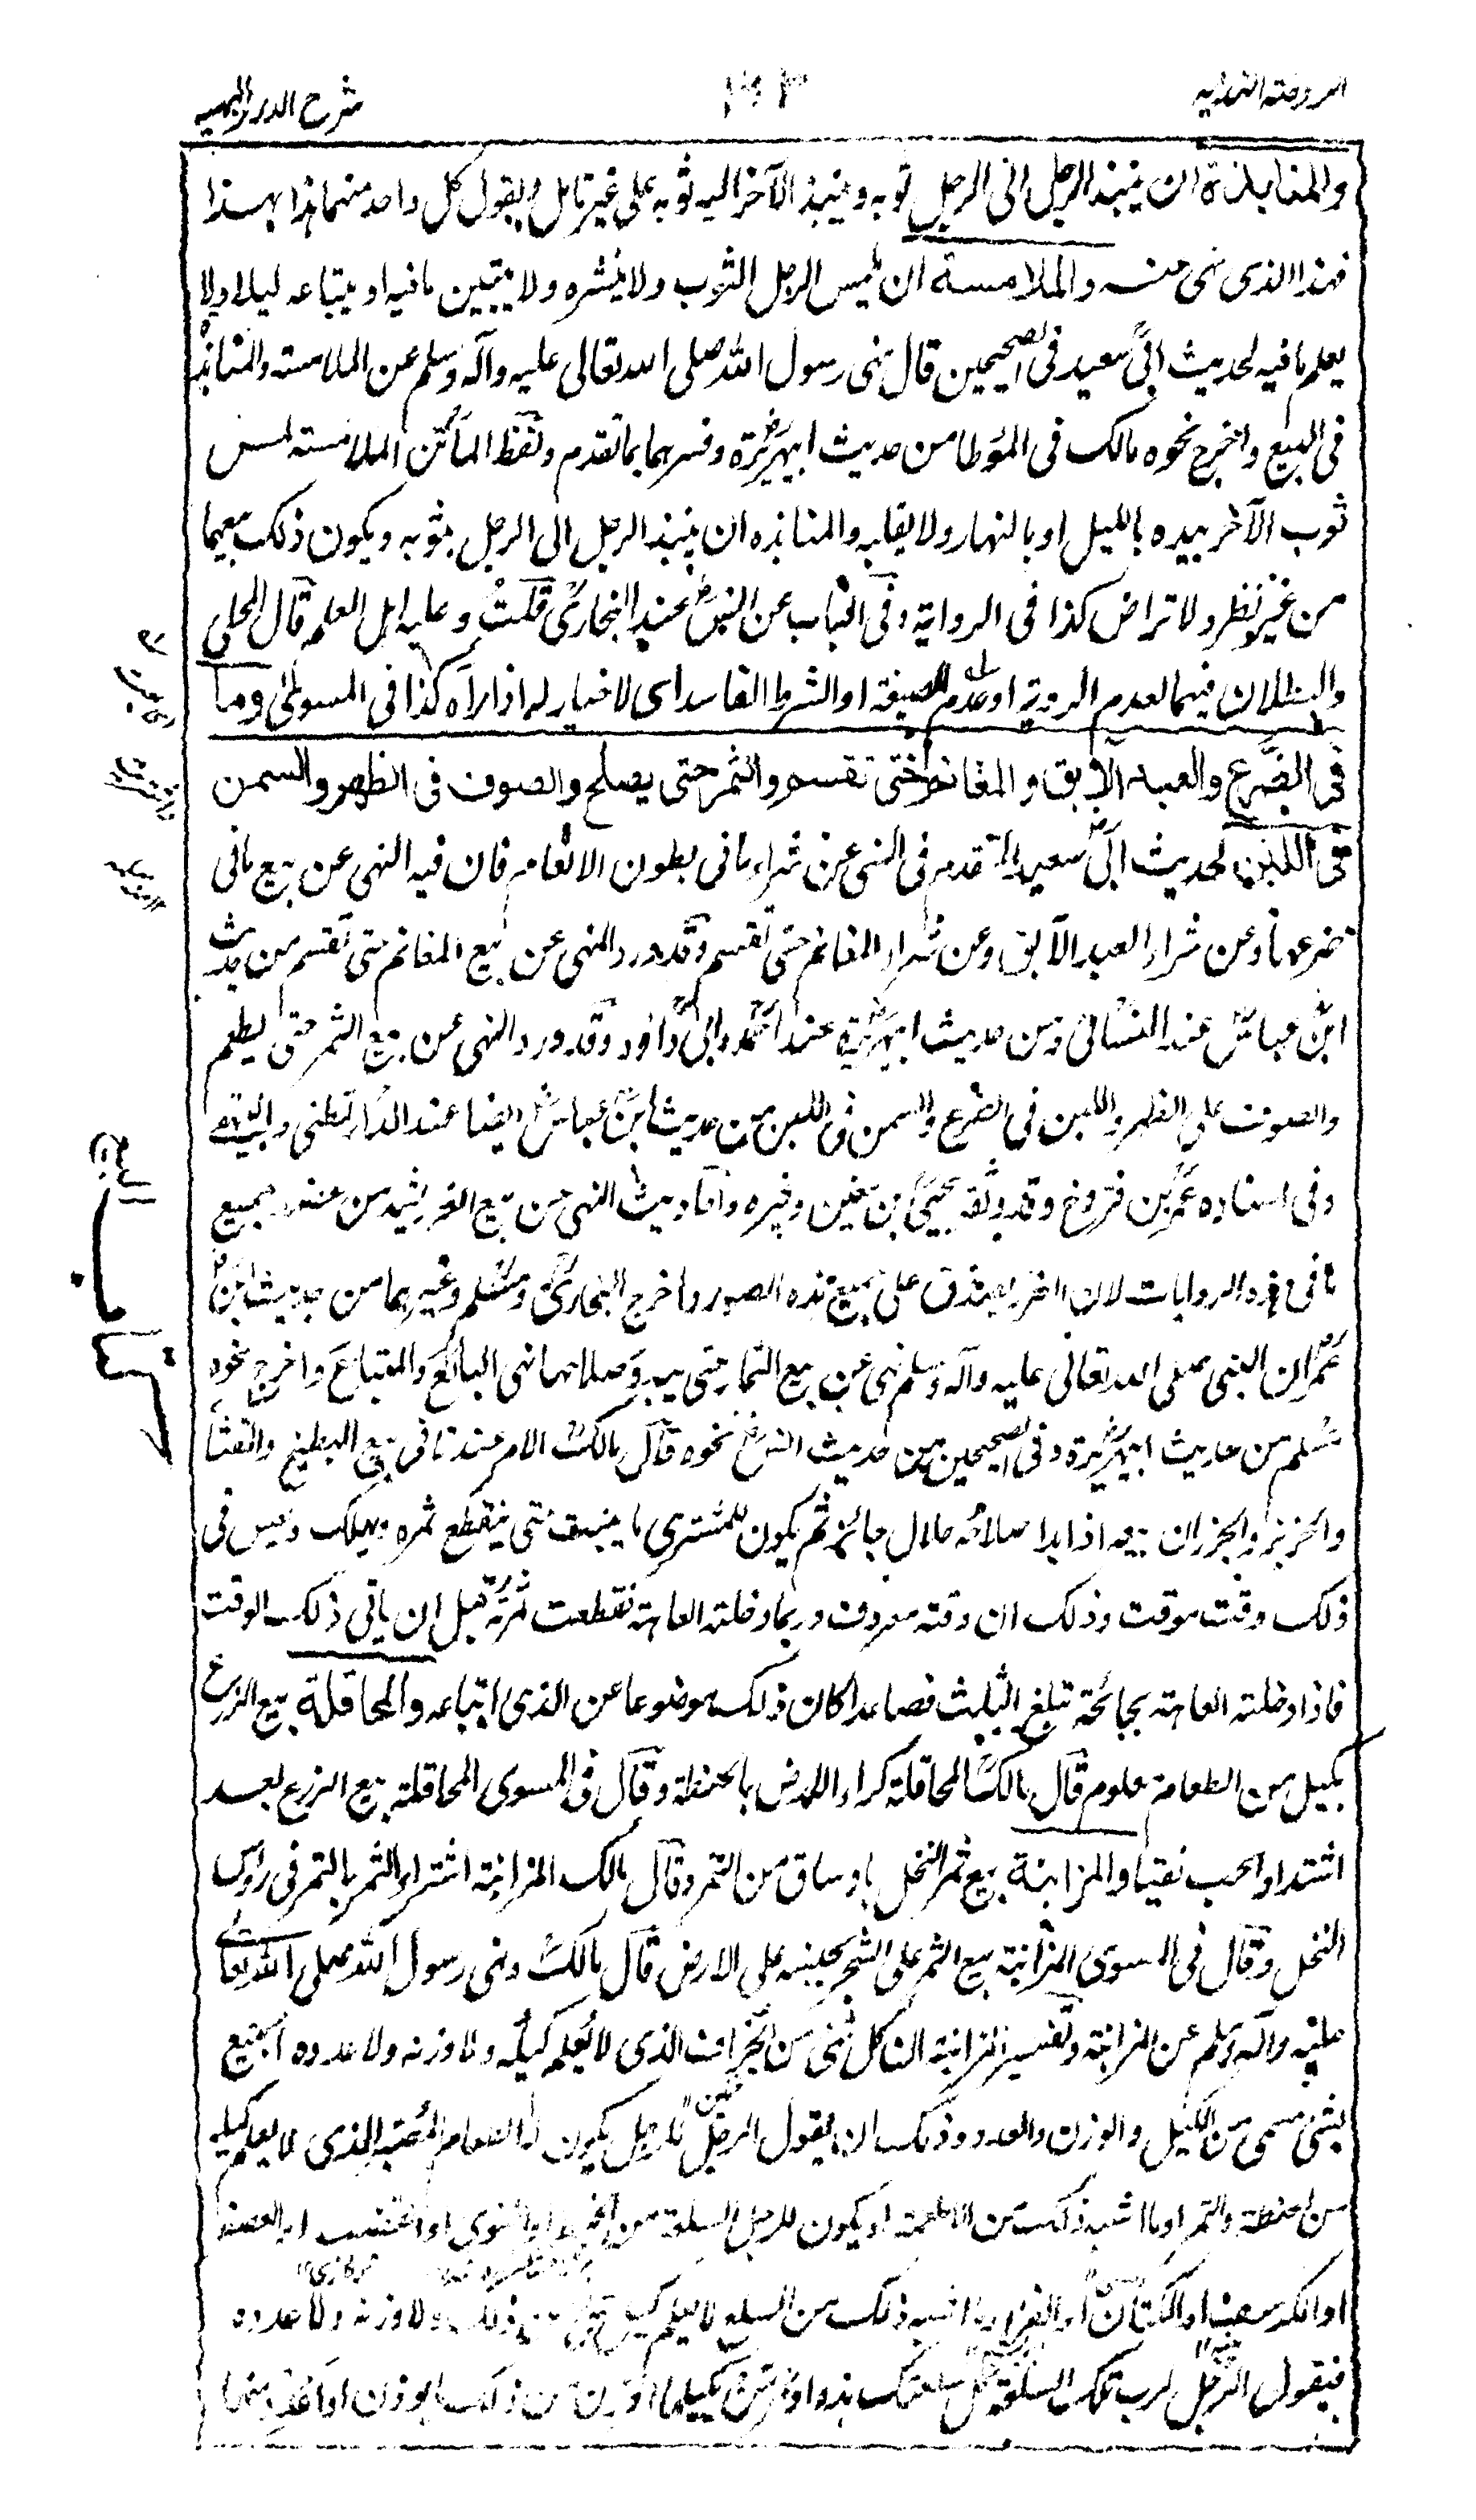 الروضة الندية
شرح الدرر البهية
والمنابذة ان ينبذ الرجل الى الرجل ثوبه وينبذ الآخر اليه ثوبه على غير تامل ويقول كل واحد منهما هذا بهذا
فهذا الذى نهى عنه والملامسة ان يلمس الرجل الثوب ولا ينشره ولا يتبين ما فيه او يبتاعه ليلا ولا
يعلم ما فيه لحديث ابى سعيد فى الصحيحين قال نهى رسول الله صلى الله تعالى عليه وآله وسلم عن الملامسة والمنابذة
فى البيع واخرج نحوه مالك فى المؤطا من حديث ابيهريرة وفسرهما بما تقدم ولفظ المتن الملامسة لمس
ثوب الآخر بيده بالليل او بالنهار ولا يقلبه والمنابذه ان ينبذ الرجل الى الرجل بثوبه ويكون ذلك بيعهما
من غير نظر ولا تراض كذا فى الرواية وفى الباب عن انس عند البخارى قلت وعليه اهل العلم قال المحلى
والبطلان فيهما لعدم الروية او عدم الصيغة او الشرط الفاسد اى لا خيار له اذا رآه كذا فى المسوى وما
فى الضرع والعبد الآبق والمغانم حتى تقسم والثمر حتى يصلح والصوف فى الظهر والسمن
فى اللبن لحديث ابى سعيد المتقدم فى النهى عن شراء ما فى بطون الانعام فان فيه النهى عن بيع ما فى
ضرعها وعن شراء العبد الآبق وعن شراء المغانم حتى تقسم وقد ورد النهى عن بيع المغانم حتى تقسم من حديث
ابن عباس عند النسائى ومن حديث ابيهريرة عند احمد وابى داود وقد ورد النهى عن بيع الثمر حتى يطعم
والصوف على الظهر واللبن فى الضرع والسمن فى اللبن من حديث ابن عباس ايضا عند الدارقطنى والبيهقى
وفى اسناده عمر بن فروخ وقد وثقه يحيى بن معين وغيره واحاديث النهى عن بيع الغرر يشد من عضد جميع
ما فى هذه الروايات لان الغرر يصدق على جميع هذه الصور واخرج البخارى ومسلم وغيرهما من حديث ابن
عمر ان النبى صلى الله تعالى عليه وآله وسلم نهى عن بيع الثمار حتى يبدو صلاحها نهى البائع والمبتاع واخرج نحوه
مسلم من حديث ابيهريرة وفى الصحيحين من حديث انس نحوه قال مالك الامر عندنا فى بيع البطيخ والقثاء
والخربز والجزر ان بيعه اذا بدا صلاحه حلال جائز ثم يكون للمشترى ما ينبت حتى ينقطع ثمره ويهلك وليس فى
ذلك وقت موقت وذلك ان وقته معروف وربما دخلته العاهة فقطعت ثمرته قبل ان ياتى ذلك الوقت
فاذا دخلته العاهة بجائحة تبلغ الثلث فصاعدا كان ذلك موضوعا عن الذى ابتاعه والمحاقلة بيع الزرع
بكيل من الطعام معلوم قال مالك المحاقلة كراء الارض بالحنطة وقال فى المسوى المحاقلة بيع الزرع بعد
اشتداد الحب نقيا والمزابنة بيع ثمر النخل باوساق من التمر وقال مالك المزابنة اشتراء الثمر بالتمر فى رؤس
النخل وقال فى المسوى المزابنة بيع الثمر على الشجر بجنسه على الارض قال مالك ونهى رسول الله صلى الله تعالى
عليه وآله وسلم عن المزابنة وتفسير المزابنة ان كل شئ من الجزاف الذى لا يعلم كيله ولا وزنه ولا عدده ابتيع
بشئ مسمى من الكيل والوزن والعدد وذلك ان يقول الرجل للرجل يكون له الطعام المصبر الذى لا يعلم كيله
من الحنطة والتمر او ما اشبه ذلك من الاطعمة او يكون للرجل السلعة من الخبط او النوى او القضب او العصفر
او الكرسف او الكتان او القز او ما اشبه ذلك من السلع لا يعلم كيل شئ من ذلك ولا وزنه ولا عدده
فيقول الرجل لرب تلك السلعة كل سلعتك هذه او مر من يكيلها او زن من ذلك ما يوزن او اعدد منها